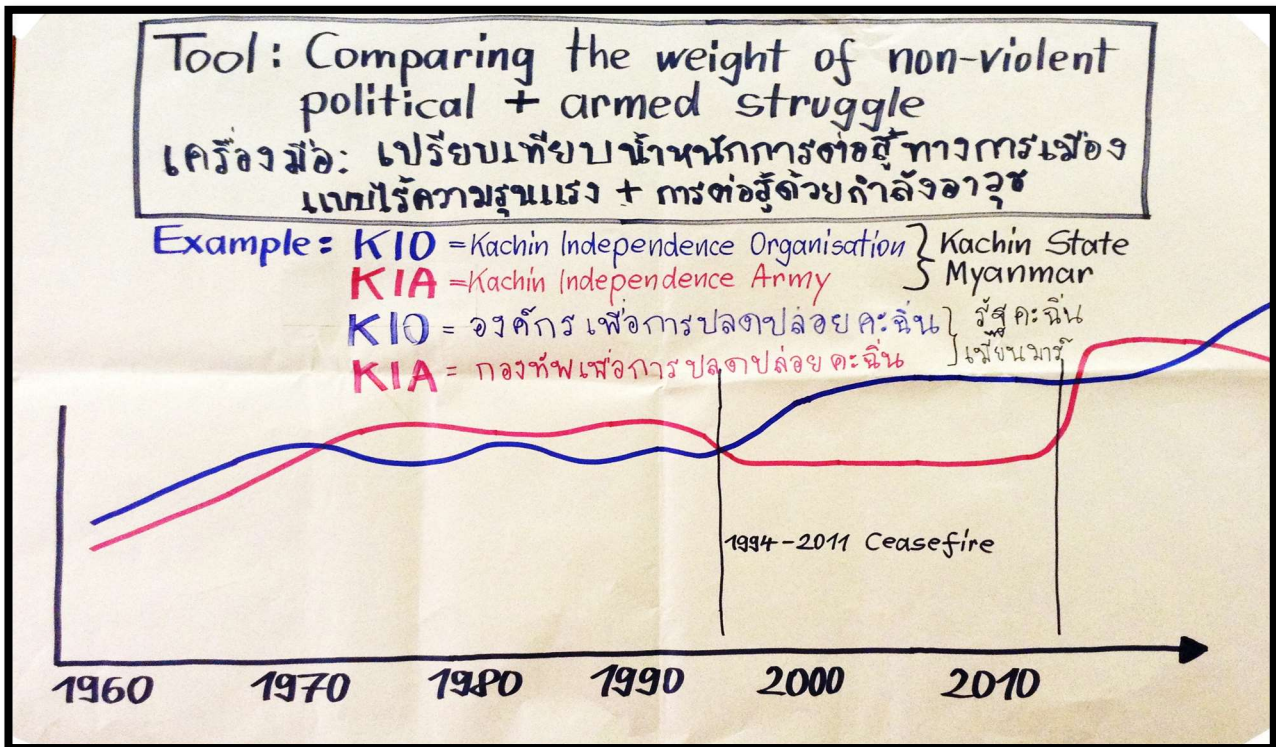 Tool: Comparing the weight of non-violent
political + armed struggle
เครื่องมือ: เปรียบเทียบน้ำหนักการต่อสู้ทางการเมือง
แบบไร้ความรุนแรง + การต่อสู้ด้วยกำลังอาวุธ
Example: KIO = Kachin Independence Organisation } Kachin State
KIA = Kachin Independence Army } Myanmar
KIO = องค์กรเพื่อการปลดปล่อยคะฉิ่น } รัฐคะฉิ่น
KIA = กองทัพเพื่อการปลดปล่อยคะฉิ่น } เมียนมาร์
1994-2011 Ceasefire
1960 1970 1980 1990 2000 2010